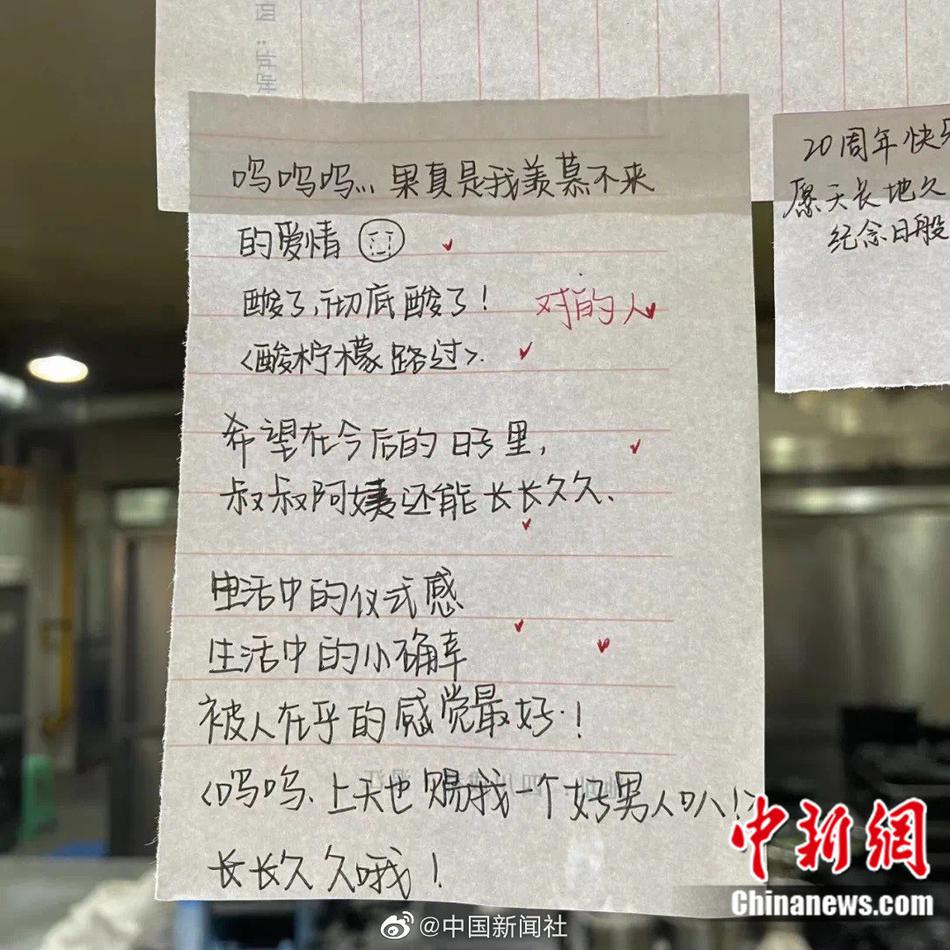 呜呜呜... 果真是我羡慕不来
的爱情
酸了,彻底酸了!
对的人
<酸柠檬路过>.
希望在今后的日子里,
叔叔阿姨还能长长久久.
生活中的仪式感
生活中的小确幸
被人在乎的感觉最好!
<呜呜.上天也赐我一个好男人叭!>
长长久久哦!
20周年快乐
愿天长地久
纪念日般
中新网
Chinanews.com
@中国新闻社